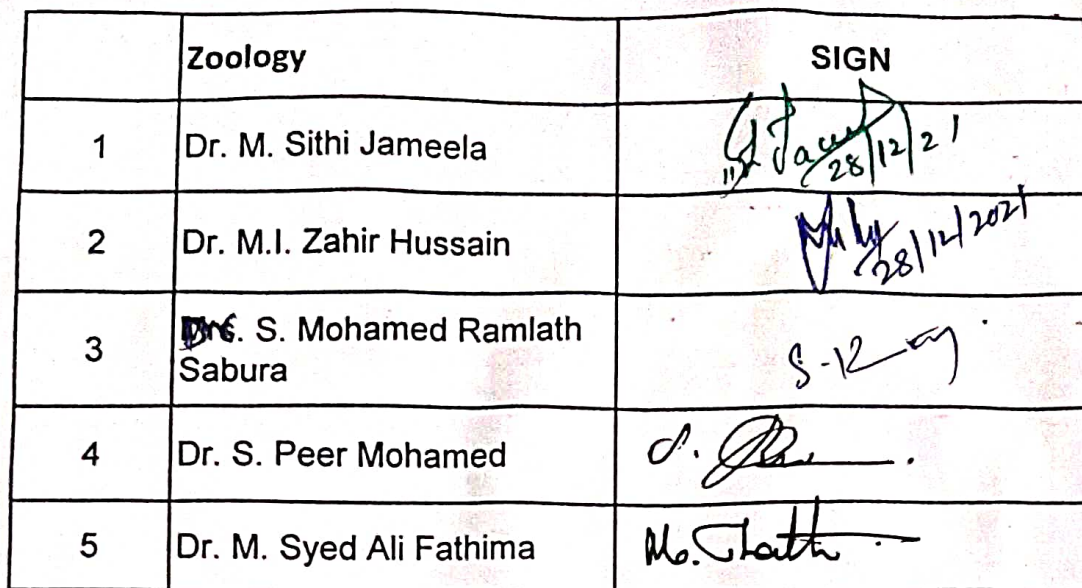 Zoology SIGN
1 Dr. M. Sithi Jameela 28/12/21
2 Dr. M.I. Zahir Hussain 28/12/2021
3 S. Mohamed Ramlath
Sabura
4 Dr. S. Peer Mohamed
5 Dr. M. Syed Ali Fathima